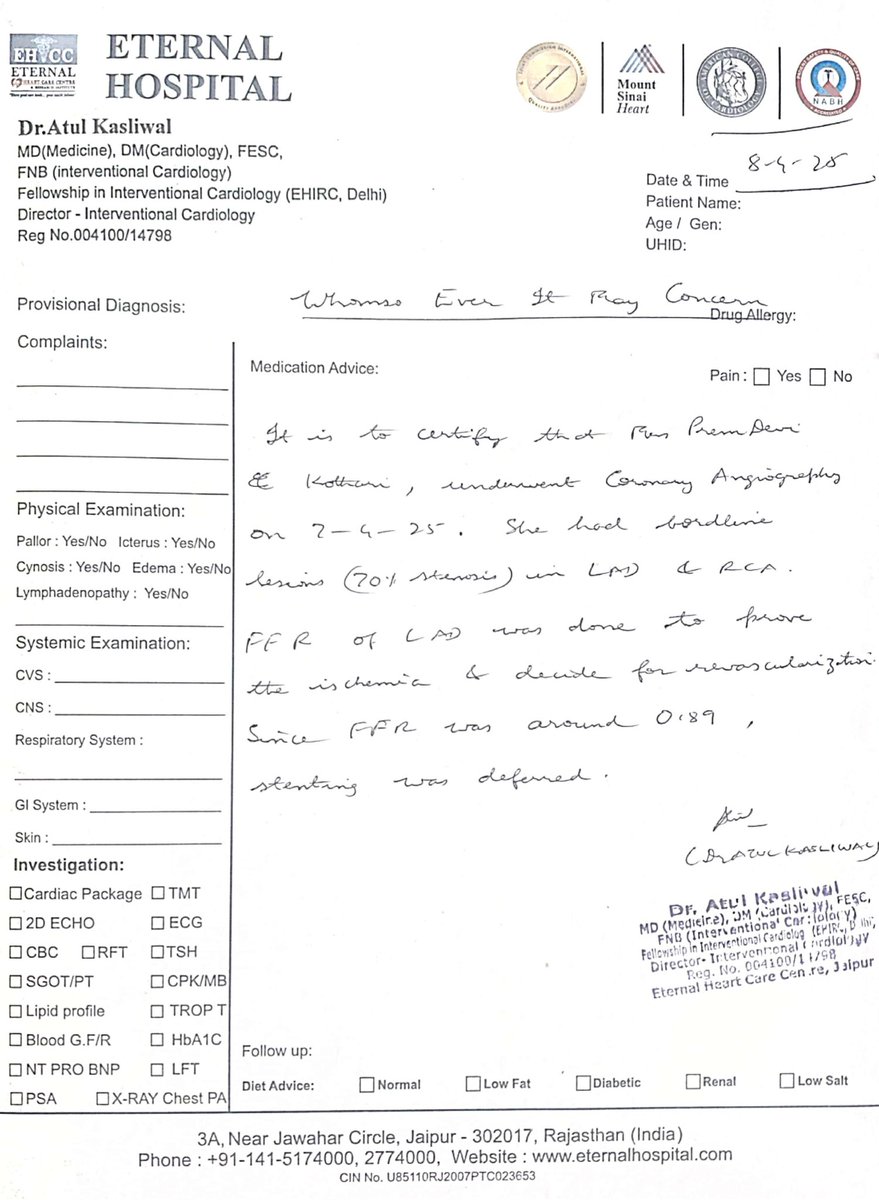 EHCC
ETERNAL
HEART CARE CENTRE
& RESEARCH INSTITUTE
ETERNAL
HOSPITAL
Mount
Sinai
Heart
NABH
Dr.Atul Kasliwal
MD(Medicine), DM(Cardiology), FESC,
FNB (interventional Cardiology)
Fellowship in Interventional Cardiology (EHIRC, Delhi)
Director - Interventional Cardiology
Reg No.004100/14798
Date & Time 8-4-25
Patient Name:
Age / Gen:
UHID:
Provisional Diagnosis:
Whomso Ever It May Concern
Drug Allergy:
Complaints:
Medication Advice:
Pain : Yes No
It is to certify that Mrs Prem Devi
Kothari, underwent Coronary Angiography
on 7-4-25. She had bordline
lesions (70% stenosis) in LAD & RCA.
FFR of LAD was done to prove
the ischemia & decide for revascularization.
Since FFR was around 0.89,
stenting was deferred.
(Dr ATUL KASLIWAL)
Dr. Atul Kasliwal
MD (Medicine), DM (Cardiology), FESC,
FNB (Interventional Cardiology)
Fellowship in Interventional Cardiolog (EHIRC, Delhi,
Director- Interventional Cardiology
Reg. No. 004100/14798
Eternal Heart Care Centre, Jaipur
Physical Examination:
Pallor : Yes/No Icterus : Yes/No
Cynosis : Yes/No Edema : Yes/No
Lymphadenopathy : Yes/No
Systemic Examination:
CVS :
CNS :
Respiratory System :
GI System :
Skin :
Investigation:
Cardiac Package TMT
2D ECHO ECG
CBC RFT TSH
SGOT/PT CPK/MB
Lipid profile TROP T
Blood G.F/R HbA1C
NT PRO BNP LFT
PSA X-RAY Chest PA
Follow up:
Diet Advice: Normal Low Fat Diabetic Renal Low Salt
3A, Near Jawahar Circle, Jaipur - 302017, Rajasthan (India)
Phone : +91-141-5174000, 2774000, Website : www.eternalhospital.com
CIN No. U85110RJ2007PTC023653